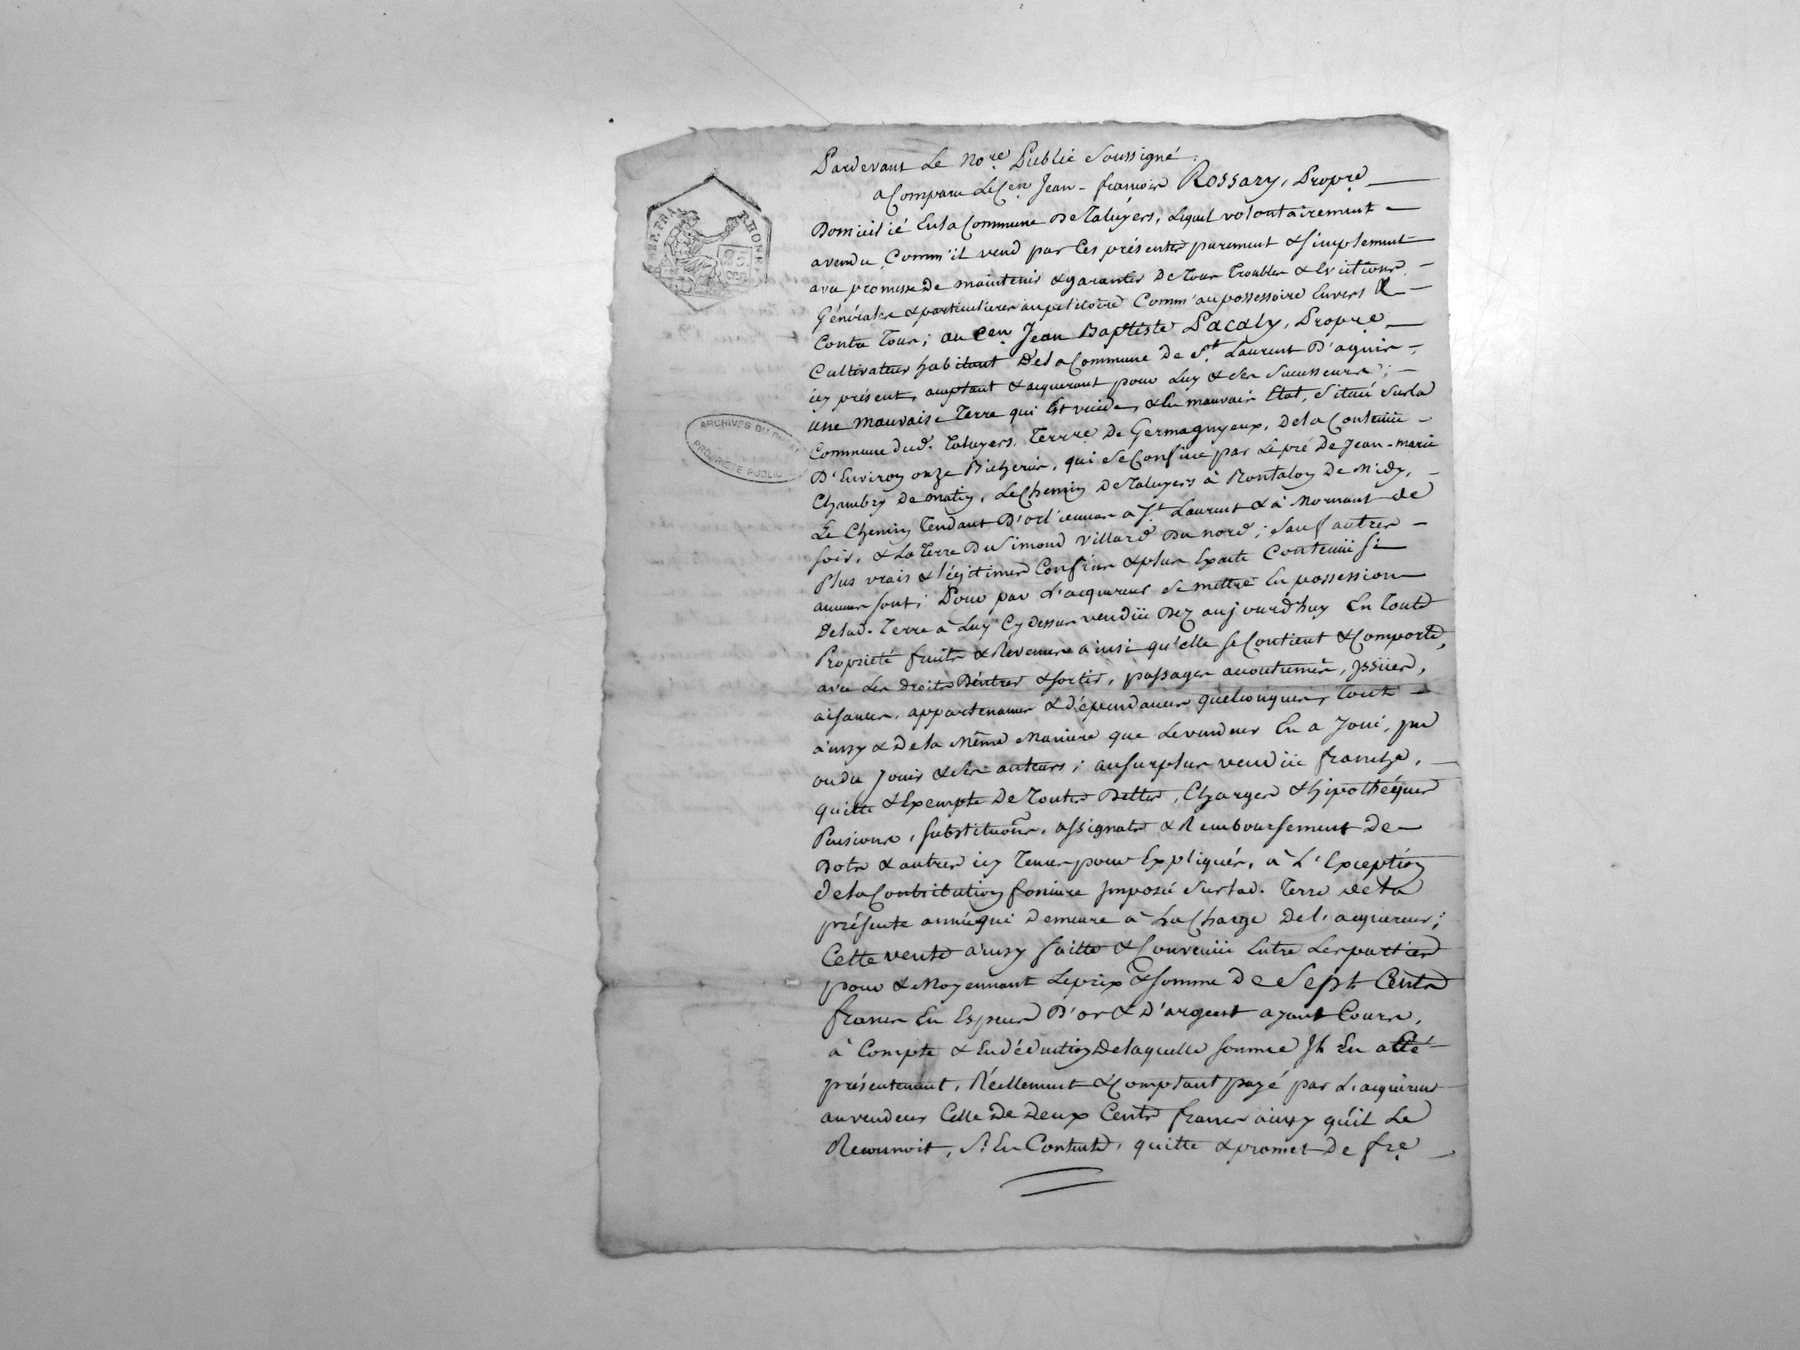 Pardevant Le No.re Public Soussigné ;
a Comparu Le C.en Jean-françois Rossary, Propre.
Domicilié En la Commune De Taluyers, Lequel volontairement
a vendu, Comm'il vend par Ces présentes purement & simplement
avec promesse De maintenir & garantir De Tous Troubles & Evictions
Générales & particulieres au petitoire Comm'au possessoire Envers &
Contre Tous ; au C.en Jean Baptiste Lacaly, Propre.
Cultivateur habitant De la Commune De St. Laurent D'agnis,
icy présent, aceptant & acquerant pour Luy & Ses Successeurs ;
une mauvaise Terre qui Est vuide, & En mauvais Etat, Située Sur la
Commune dud. Taluyers, Terrre. De Germagnyeux, De la Contenüe
D'Environ onze Bicherées, qui Se Confine par Le pré De Jean-marie
Chambry De matin, Le Chemin De Taluyers à Rontalon De Midy,
Le Chemin Tendant D'orliennas à St. Laurent & à Mornant De
soir, & La Terre Du Simond Villard Du nord ; Sauf autres
plus vrais & légitimes Confins & plus Exacte Contenüe Si
aucuns sont ; Pour par L'acquereur Se mettre En possession
De lad. Terre à Luy Cy dessus vendüe Dez aujourd'huy En Toute
Propriété fruits & Revenus ainsi qu'elle Se Contient & Comporte,
avec Les droits D'entrées & sorties, passages acoutumés, jssües,
aisances, appartenances & dépendances quelconques, Tout
ainsy & De la Même Maniere que Le vendeur En a Joui, pu
ou du Jouir & Ses auteurs ; au Surplus vendüe franche,
quitte & Exempte De Toutes Dettes, Charges & hipothéques
Pensions, substitu.ons, assignats & Remboursement De
Dots & autres icy Tenus pour Expliqués, à L'Exception
De la Contribution fonciere jmposée Sur lad. Terre De la
présente année qui Demeure à La Charge De L'acquereur ;
Cette vente ainsy faitte & Convenüe Entre Les parties
pour & Moyennant Le prix & Somme De Sept Cents
francs En Especes D'or & D'argent ayant Cours,
à Compte & En déduction De laquelle Somme Jl En a Eté
présentement, Réellement & Comptant payé par L'acquereur
au vendeur Celle De Deux Cents francs ainsy qu'il Le
Reconnoit, S'En Contente, quitte & promet De fre.
RHONE
ARCHIVES DU
PROPRIETE PUBLIQUE